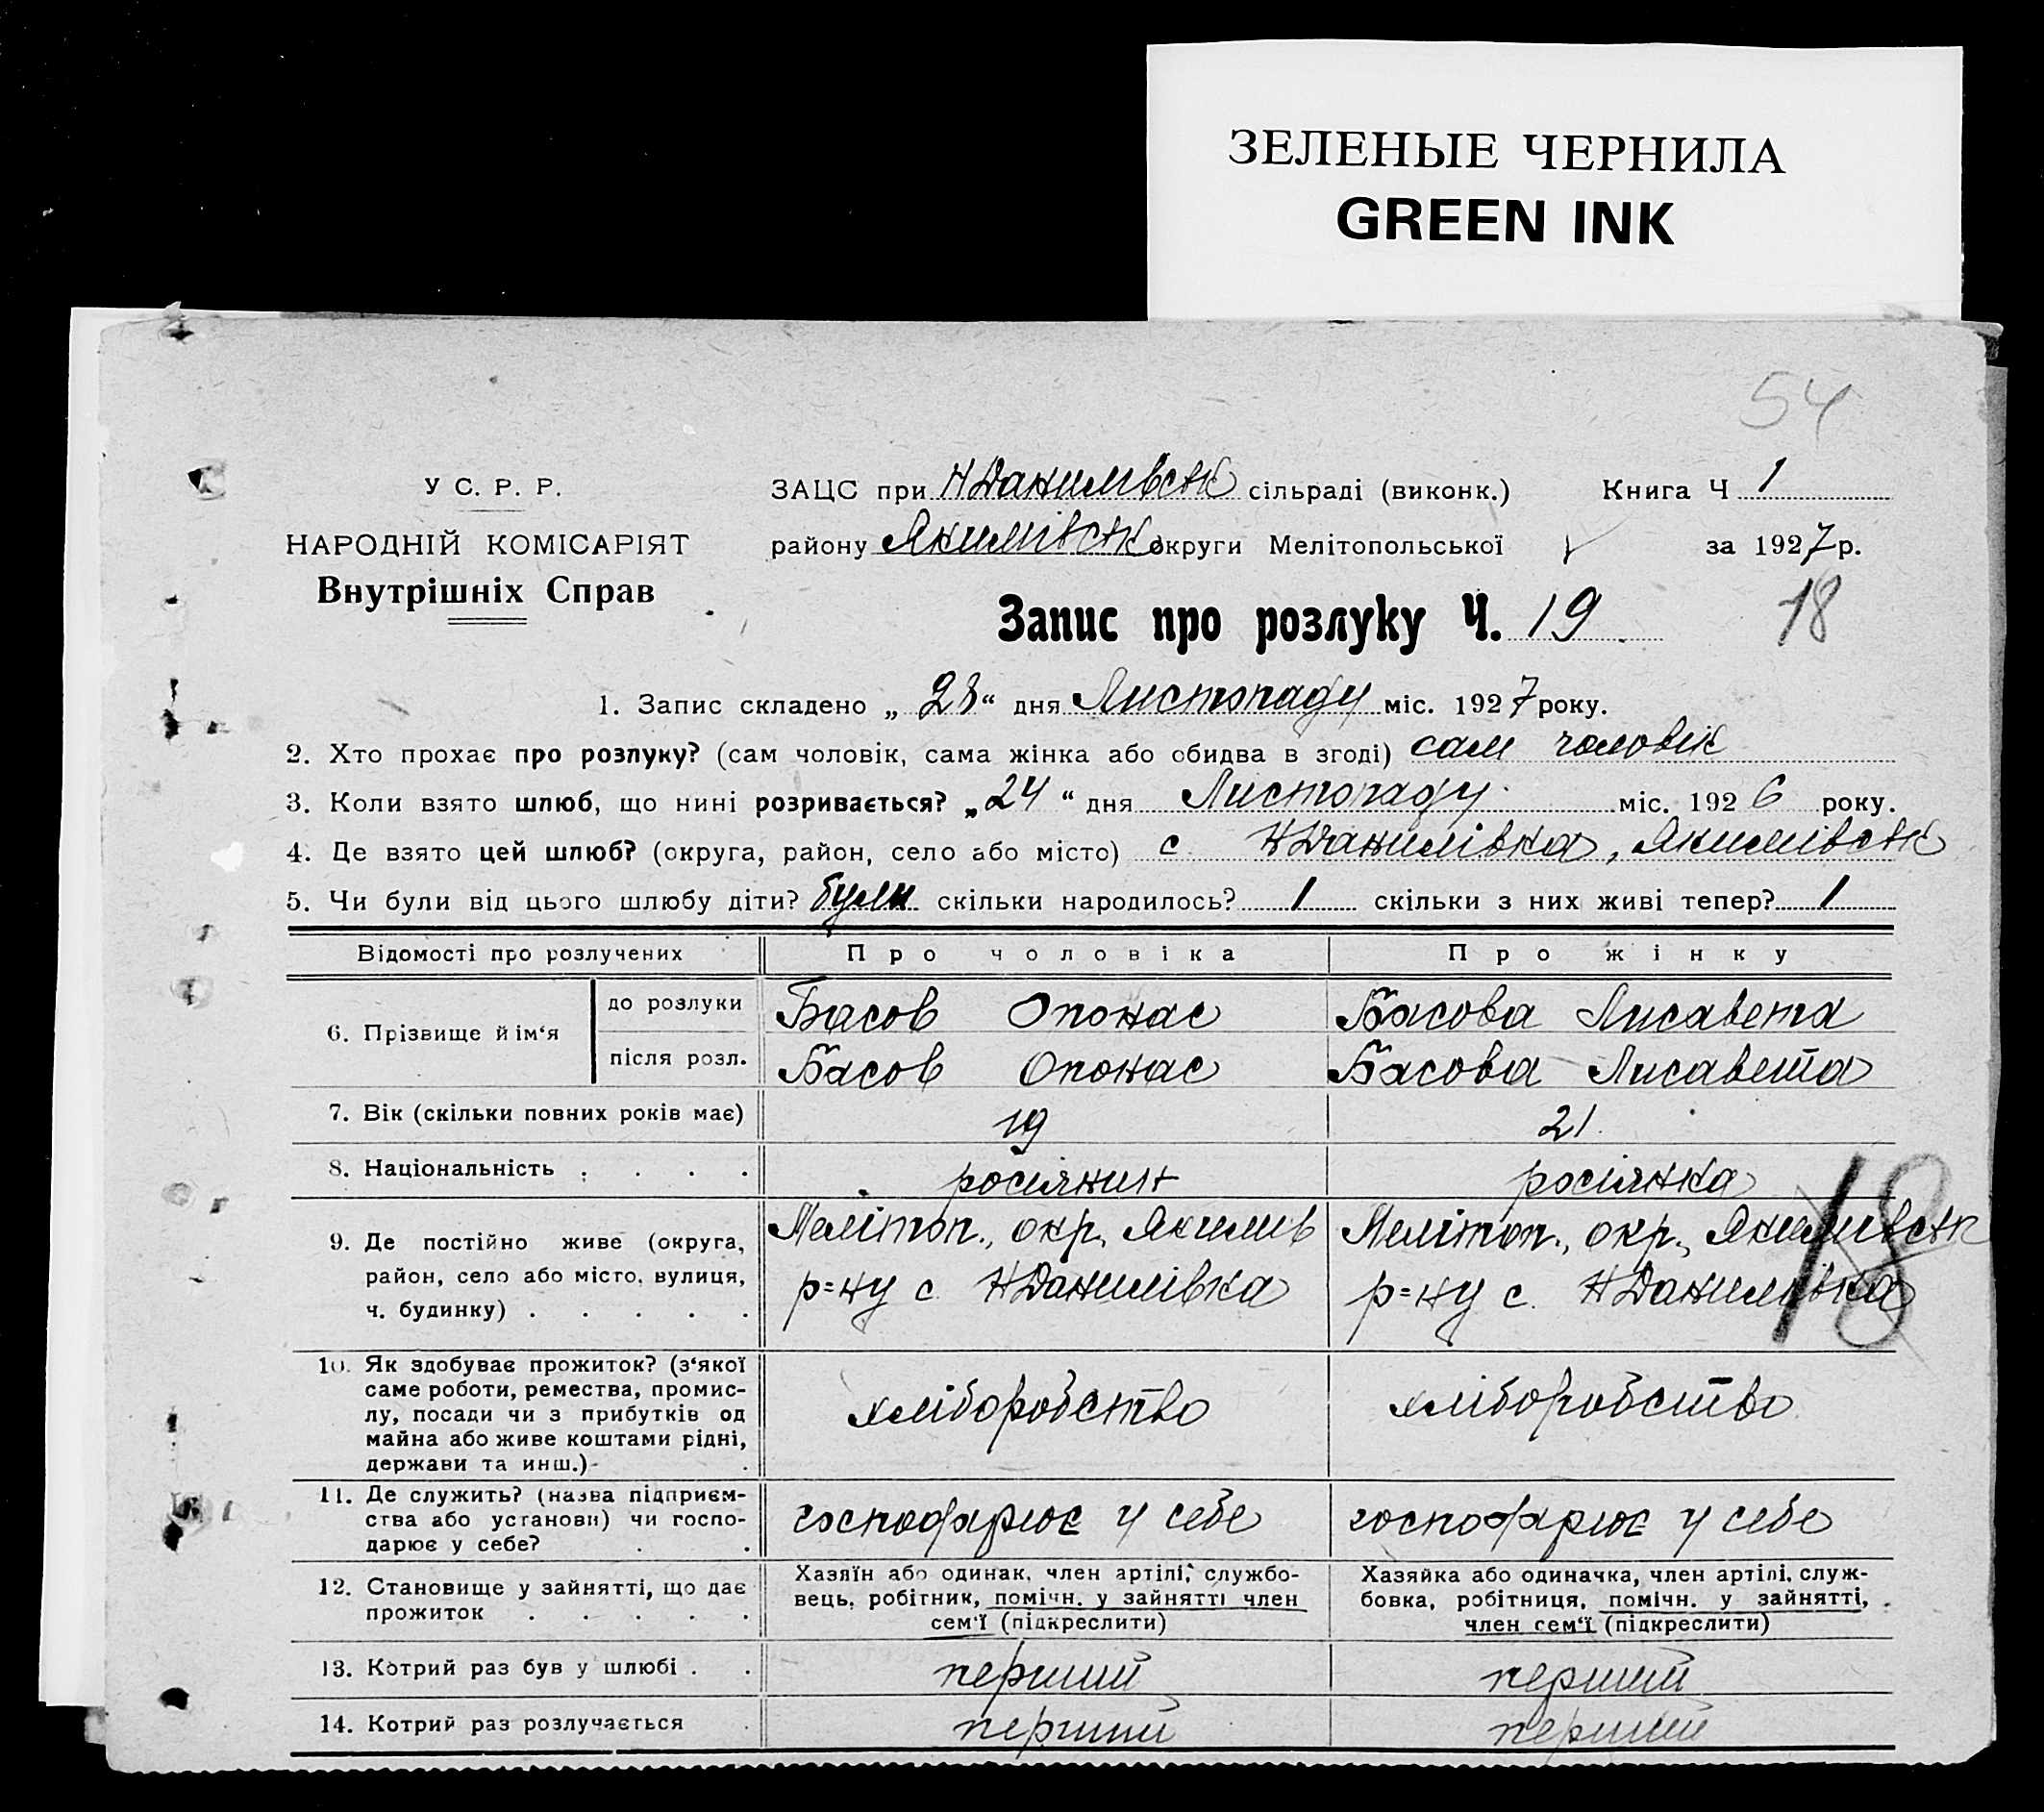 ЗЕЛЕНЫЕ ЧЕРНИЛА
GREEN INK
54
У С. Р. Р.
НАРОДНІЙ КОМІСАРІЯТ
Внутрішніх Справ
ЗАЦС при НДанилівськ сільраді (виконк.) Книга Ч 1
району Якимівськ округи Мелітопольської за 1927 р.
Запис про розлуку Ч. 19 18
1. Запис складено „ 28 “ дня Листопаду міс. 1927 року.
2. Хто прохає про розлуку? (сам чоловік, сама жінка або обидва в згоді) сам чоловік
3. Коли взято шлюб, що нині розривається? „ 24 “ дня Листопаду міс. 1926 року.
4. Де взято цей шлюб? (округа, район, село або місто) с НДанилівка, Якимівськ
5. Чи були від цього шлюбу діти? були скільки народилось? 1 скільки з них живі тепер? 1
Відомості про розлучених Про чоловіка Про жінку
6. Прізвище й ім‘я
до розлуки Басов Опонас Басова Лисавета
після розл. Басов Опонас Басова Лисавета
7. Вік (скільки повних років має) 19 21
8. Національність росіянин росіянка
9. Де постійно живе (округа, район, село або місто, вулиця, ч. будинку)
Меліт оп., окр., Якимів Мелітоп., окр., Якимівськ
р=ну с. НДанилівка р=ну с. НДанилівка
18
10. Як здобуває прожиток? (з‘якої
саме роботи, ремества, промис-
лу, посади чи з прибутків од
майна або живе коштами рідні,
держави та инш.)
хліборобство хліборобство
11. Де служить? (назва підприєм-
ства або установи) чи госпо-
дарює у себе?
господарює у себе господарює у себе
12. Становище у зайнятті, що дає
прожиток
Хазяїн або одинак, член артілі, службо-
вець, робітник, помічн. у зайнятті член
сем‘ї (підкреслити)
Хазяйка або одиначка, член артілі, служ-
бовка, робітниця, помічн. у зайнятті,
член сем‘ї (підкреслити)
13. Котрий раз був у шлюбі перший перший
14. Котрий раз розлучається перший перший